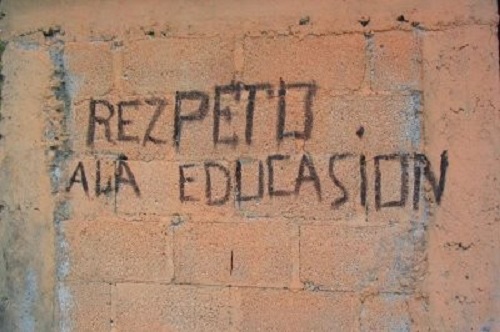 REZPETO
ALA EDUCASION